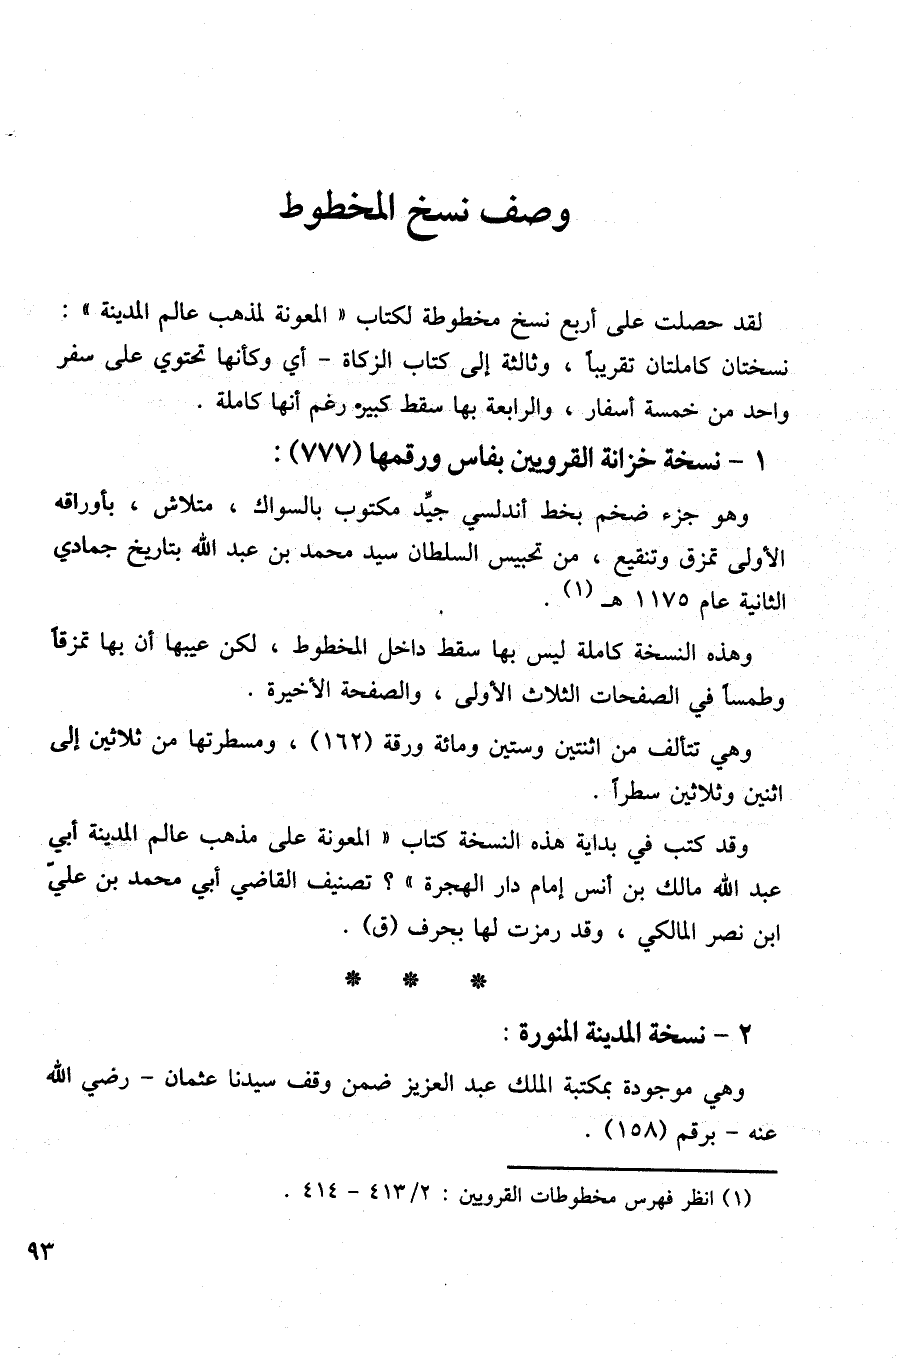 وصف نسخ المخطوط
لقد حصلت على أربع نسخ مخطوطة لكتاب « المعونة لمذهب عالم المدينة » :
نسختان كاملتان تقريباً ، وثالثة إلى كتاب الزكاة – أي وكأنها تحتوي على سفر
واحد من خمسة أسفار ، والرابعة بها سقط كبير رغم أنها كاملة .
١ – نسخة خزانة القرويين بفاس ورقمها (٧٧٧) :
وهو جزء ضخم بخط أندلسي جيِّد مكتوب بالسواك ، متلاش ، بأوراقه
الأولى تمزق وتنقيع ، من تحبيس السلطان سيد محمد بن عبد الله بتاريخ جمادي
الثانية عام ١١٧٥ هـ (١) .
وهذه النسخة كاملة ليس بها سقط داخل المخطوط ، لكن عيبها أن بها تمزقاً
وطمساً في الصفحات الثلاث الأولى ، والصفحة الأخيرة .
وهي تتألف من اثنتين وستين ومائة ورقة (١٦٢) ، ومسطرتها من ثلاثين إلى
اثنين وثلاثين سطراً .
وقد كتب في بداية هذه النسخة كتاب « المعونة على مذهب عالم المدينة أبي
عبد الله مالك بن أنس إمام دار الهجرة » ؟ تصنيف القاضي أبي محمد بن عليّ
ابن نصر المالكي ، وقد رمزت لها بحرف (ق) .
* * *
٢ – نسخة المدينة المنورة :
وهي موجودة بمكتبة الملك عبد العزيز ضمن وقف سيدنا عثمان – رضي الله
عنه – برقم (١٥٨) .
(١) انظر فهرس مخطوطات القرويين : ٤١٣/٢ – ٤١٤ .
٩٣